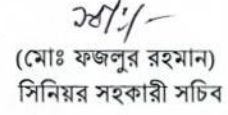 স্বাঃ/-
(মোঃ ফজলুর রহমান)
সিনিয়র সহকারী সচিব